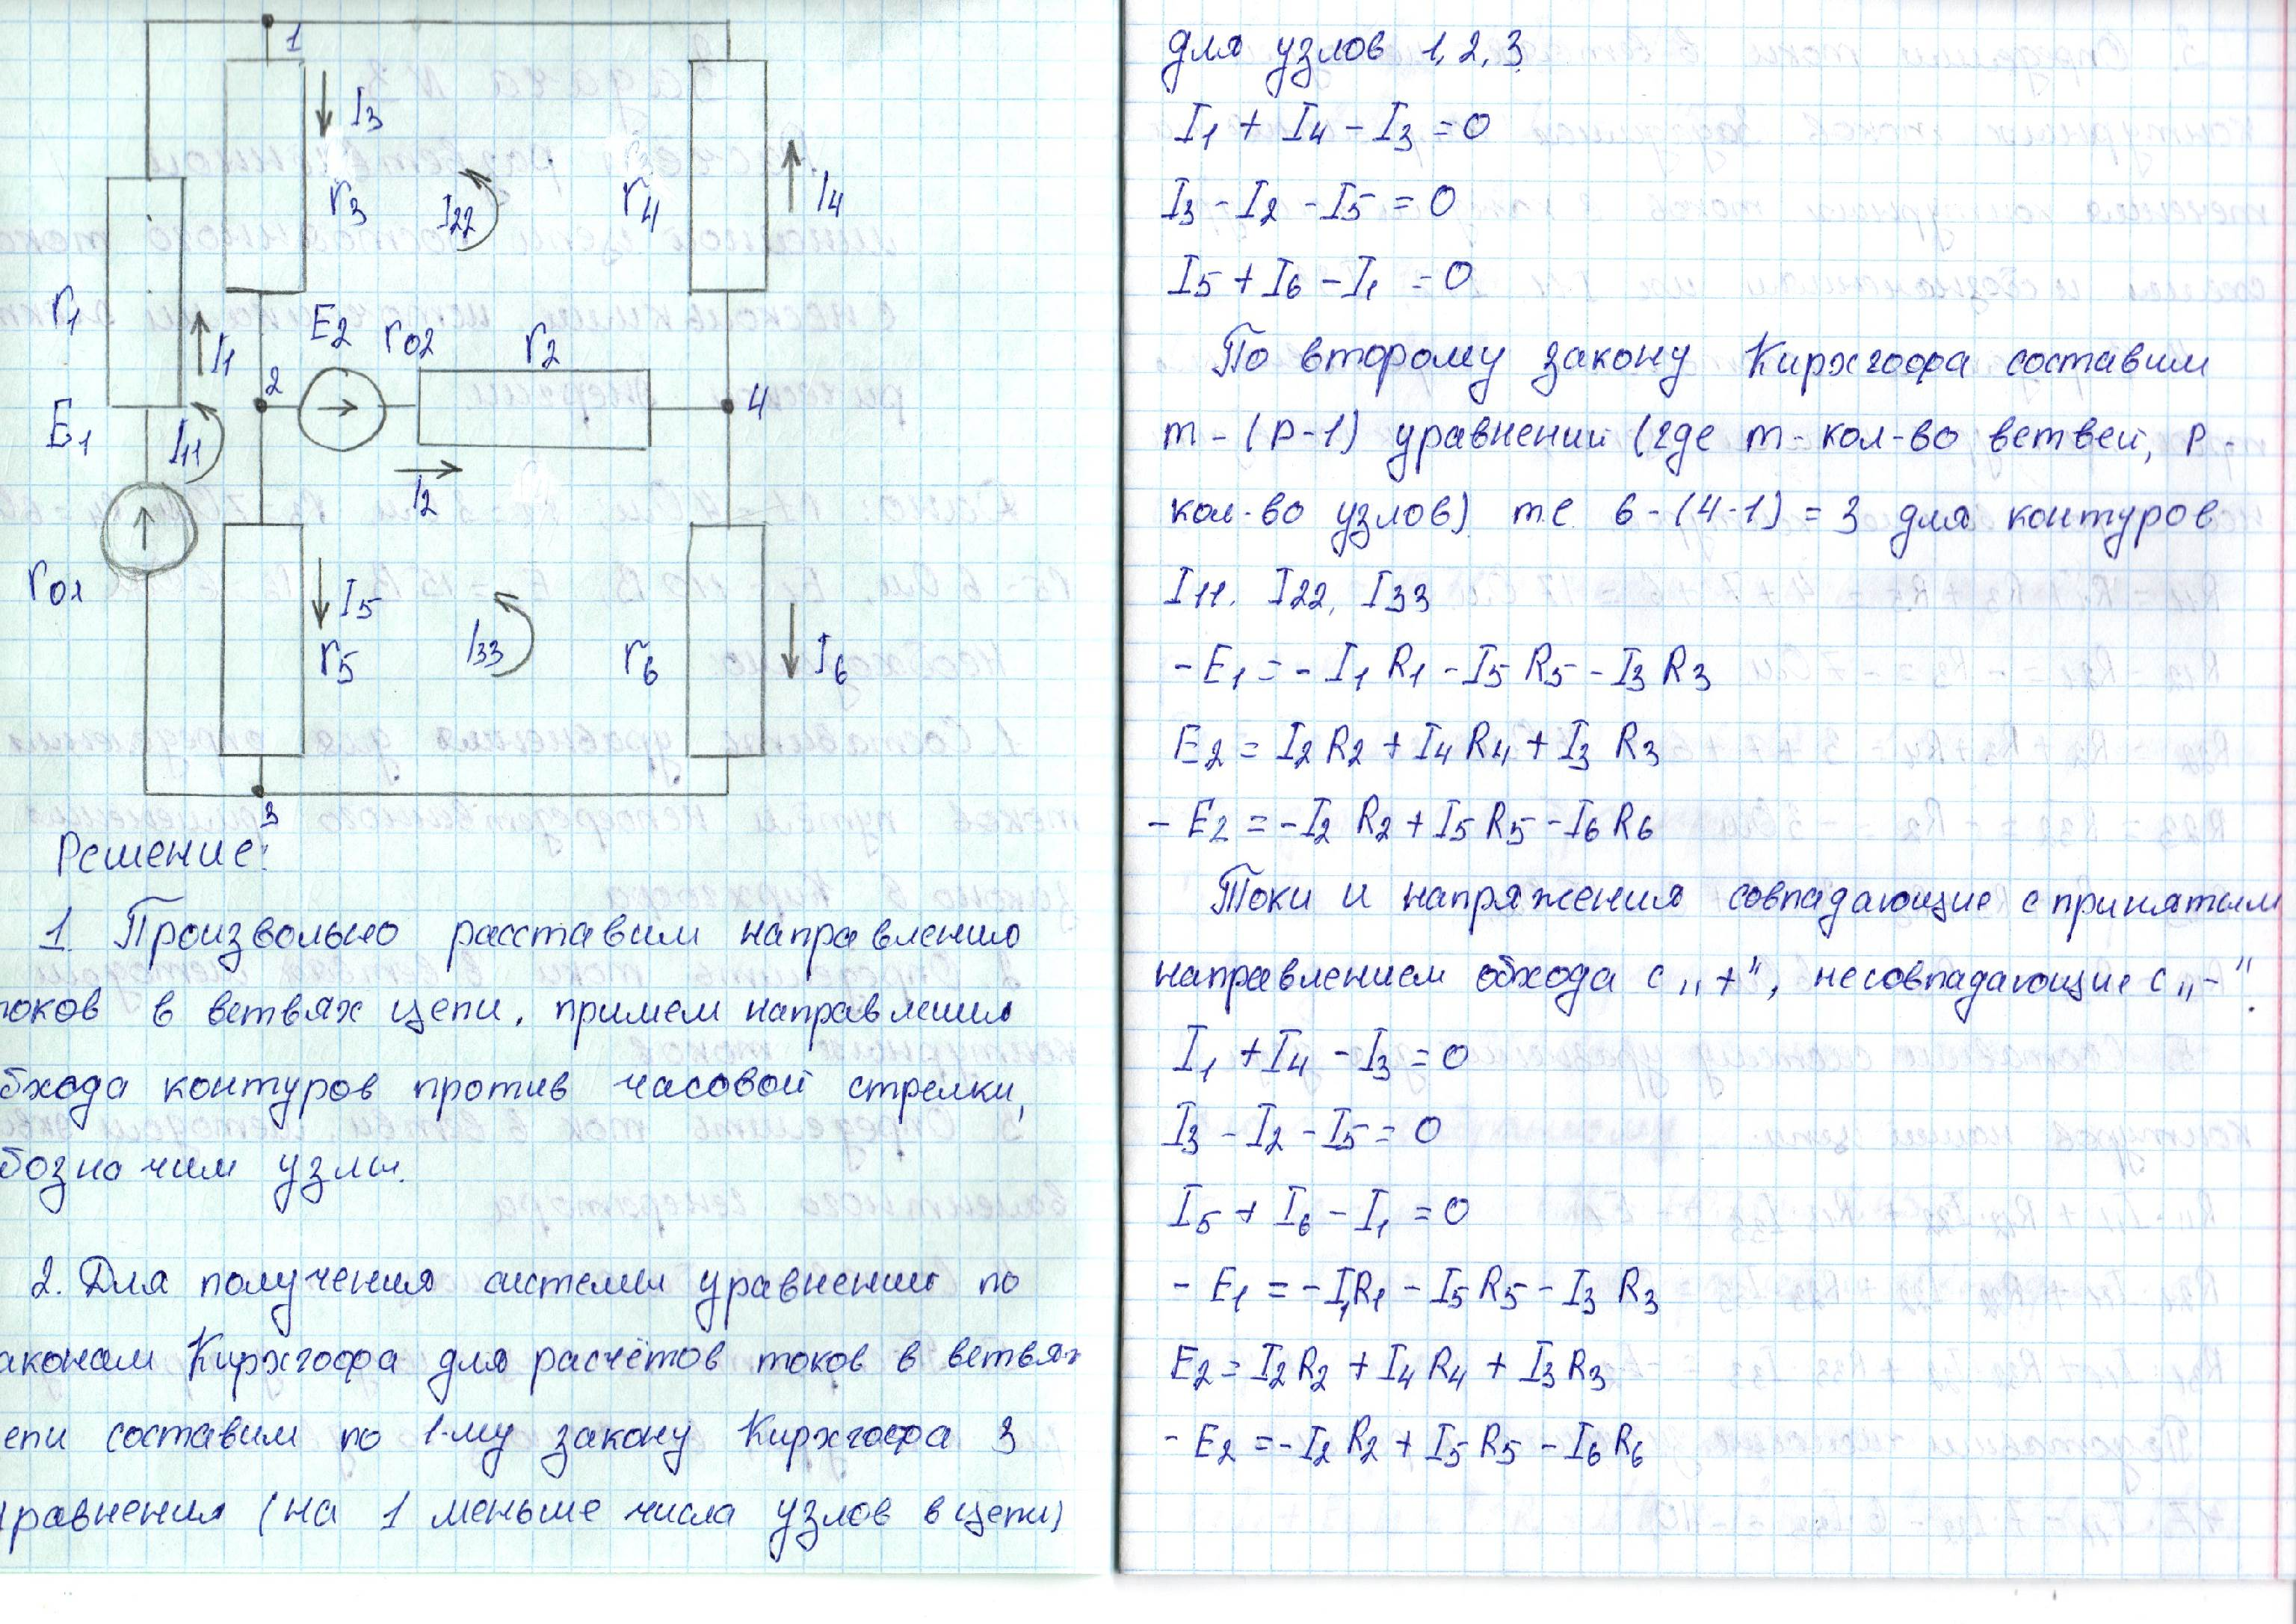 1
I3
r3
I22
r4
I4
r1
I1
E2
r02
r2
2
4
E1
I11
I2
r01
I5
r5
I33
r6
I6
3
Решение:
1. Произвольно расставим направлению
токов в ветвях цепи, примем направления
бхода контуров против часовой стрелки,
бозначим узлы.
2. Для получения системы уравнений по
аконам Кирхгофа для расчётов токов в ветвях
епи составим по 1-му закону Кирхгофа 3
равнения (на 1 меньше числа узлов в цепи)
для узлов 1, 2, 3
I1 + I4 - I3 = 0
I3 - I2 - I5 = 0
I5 + I6 - I1 = 0
По второму закону Кирхгофа составим
m - (p-1) уравнений (где m - кол-во ветвей, p -
кол-во узлов) т.е. 6 - (4-1) = 3 для контуров
I11. I22, I33
- E1 = - I1 R1 - I5 R5 - I3 R3
E2 = I2 R2 + I4 R4 + I3 R3
- E2 = -I2 R2 + I5 R5 - I6 R6
Токи и напряжения совпадающие с принятым
направлением обхода с „+", несовпадающие с „-".
I1 + I4 - I3 = 0
I3 - I2 - I5 = 0
I5 + I6 - I1 = 0
- E1 = - I1R1 - I5 R5 - I3 R3
E2 = I2 R2 + I4 R4 + I3 R3
- E2 = - I2 R2 + I5 R5 - I6 R6